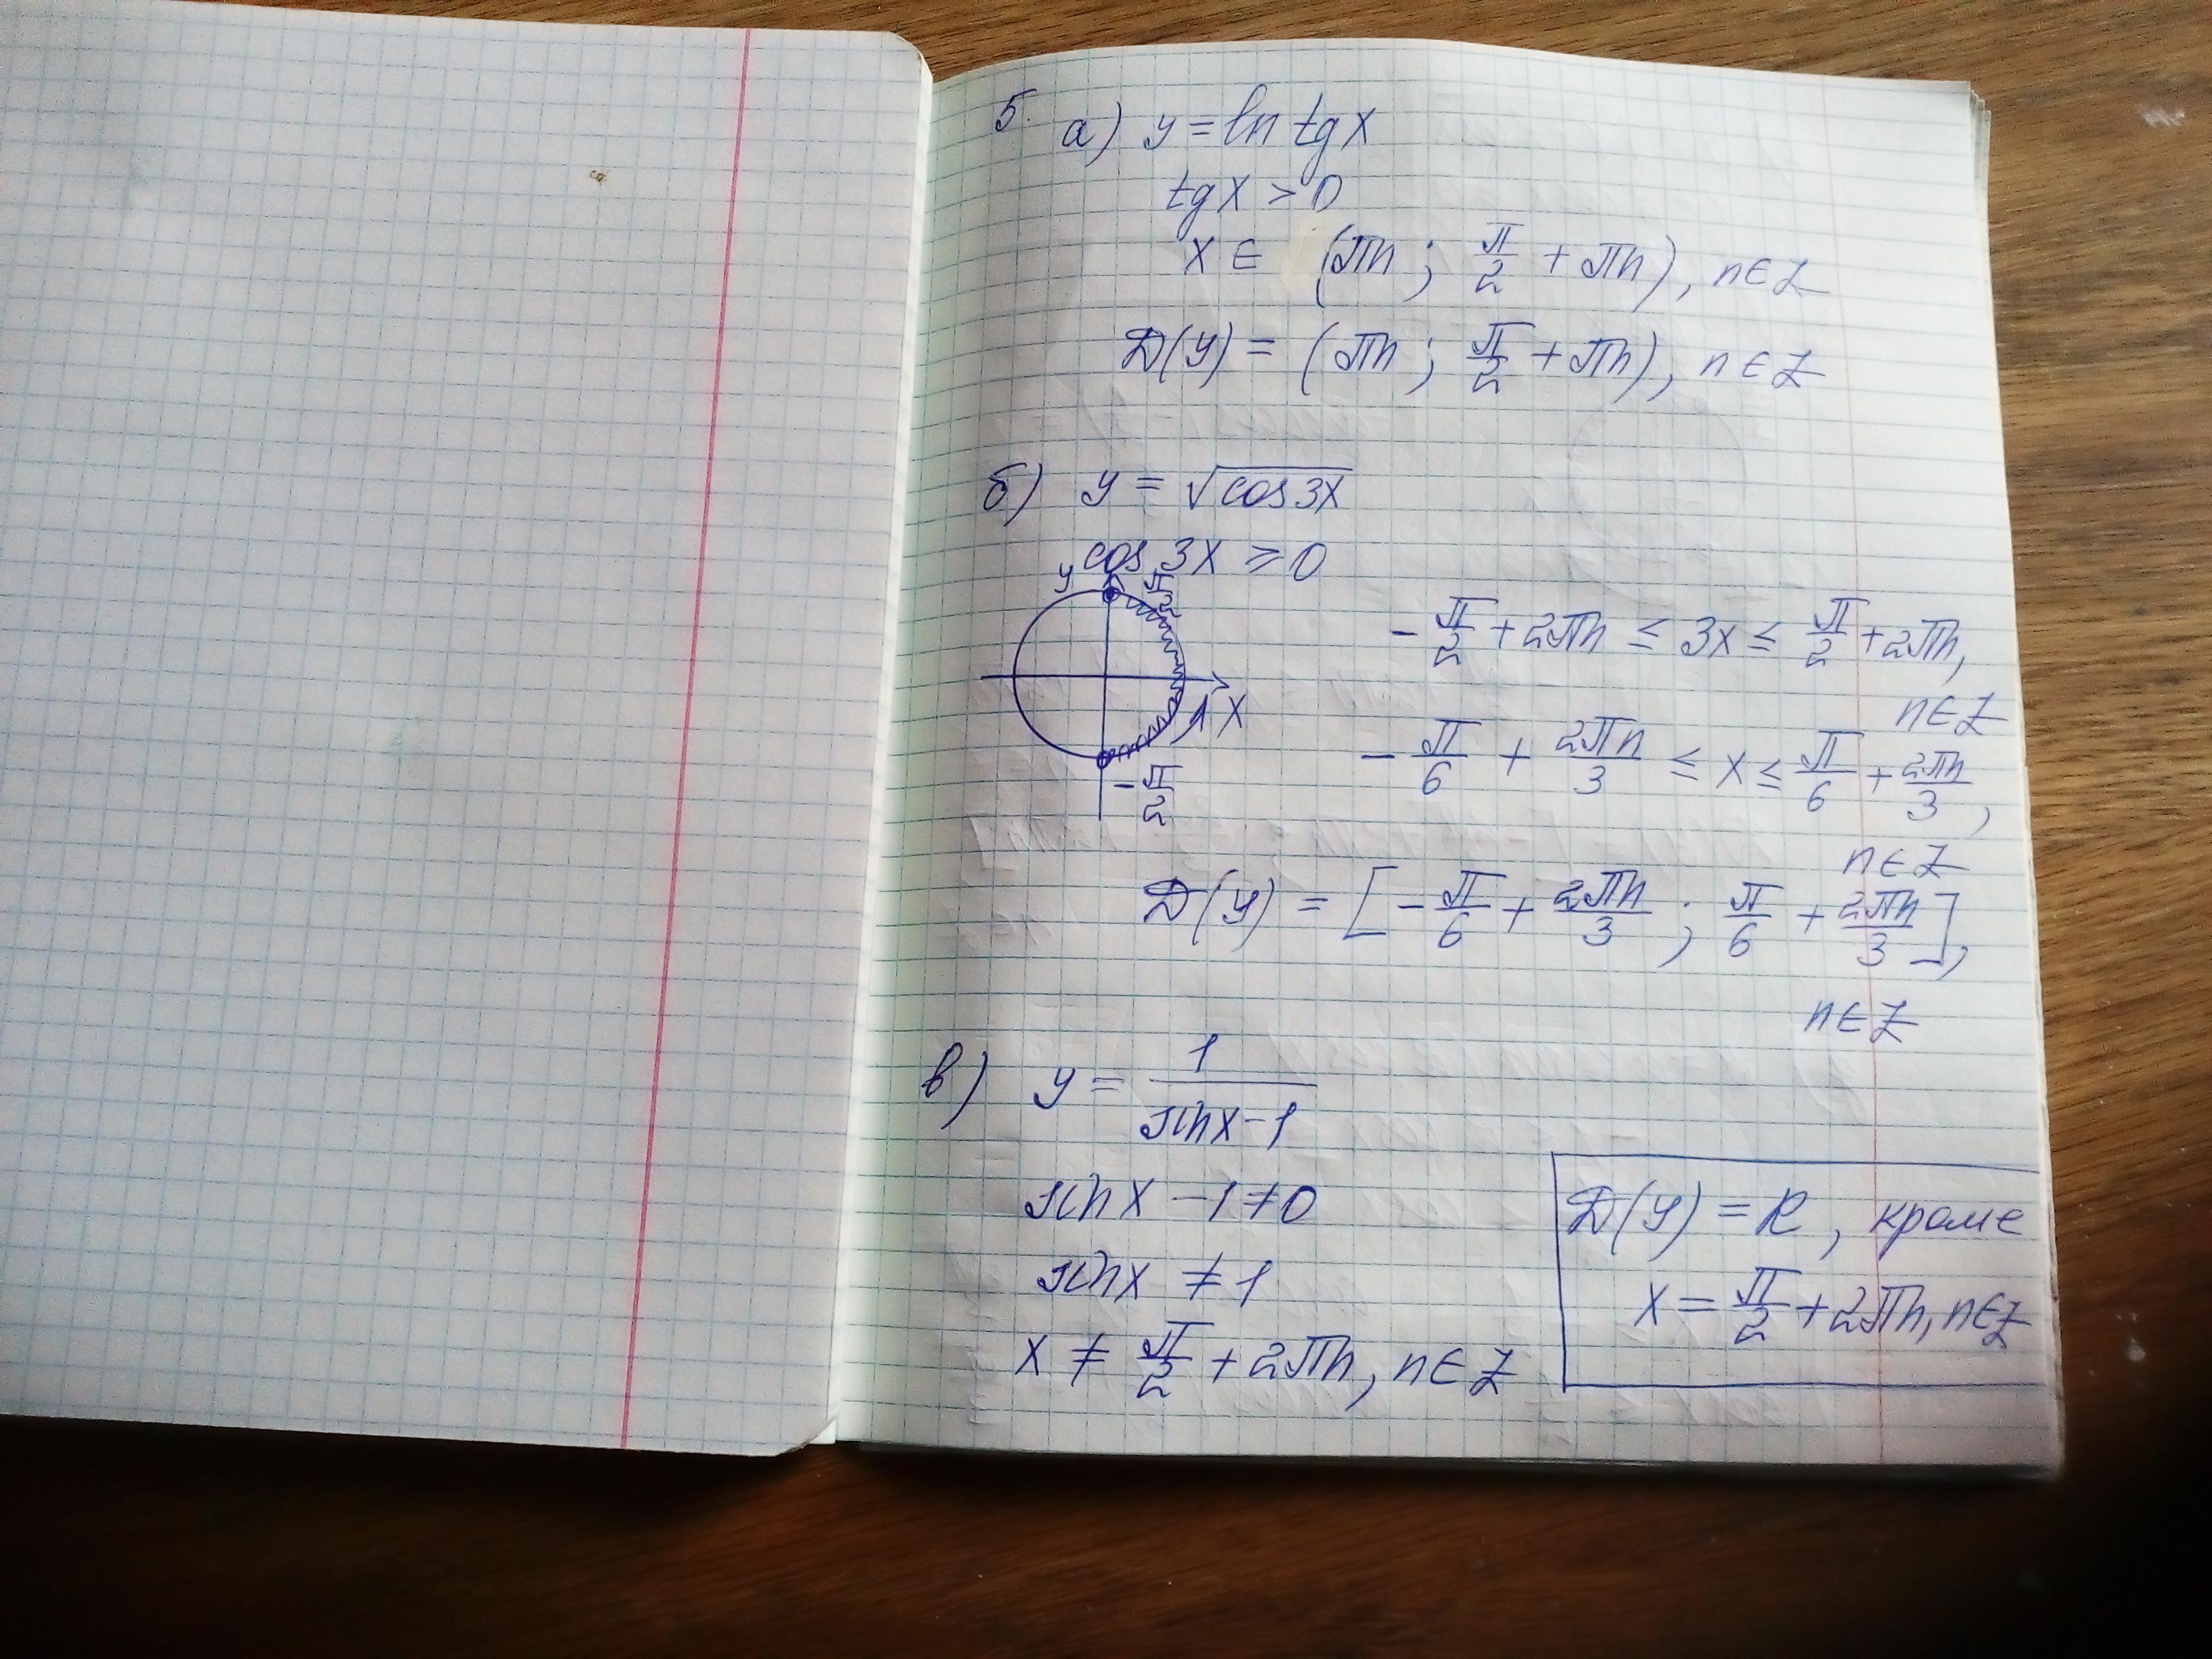 5. а) y = ln tg x
tg x > 0
x ∈ (πn ; π/2 + πn), n ∈ Z
D(y) = (πn ; π/2 + πn), n ∈ Z
б) y = √cos 3x
cos 3x ≥ 0
y
π/2
x
-π/2
-π/2 + 2πn ≤ 3x ≤ π/2 + 2πn,
n ∈ Z
-π/6 + 2πn/3 ≤ x ≤ π/6 + 2πn/3,
n ∈ Z
D(y) = [-π/6 + 2πn/3 ; π/6 + 2πn/3],
n ∈ Z
в) y = 1/(sin x - 1)
sin x - 1 ≠ 0
sin x ≠ 1
x ≠ π/2 + 2πn, n ∈ Z
D(y) = R, кроме
x = π/2 + 2πn, n ∈ Z